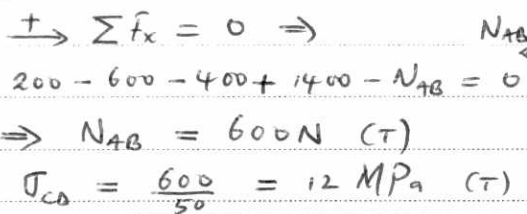 +→ ΣFx = 0 ⇒ N_AB
200 - 600 - 400 + 1400 - N_AB = 0
⇒ N_AB = 600N (T)
σ_CD = 600/50 = 12 MPa (T)